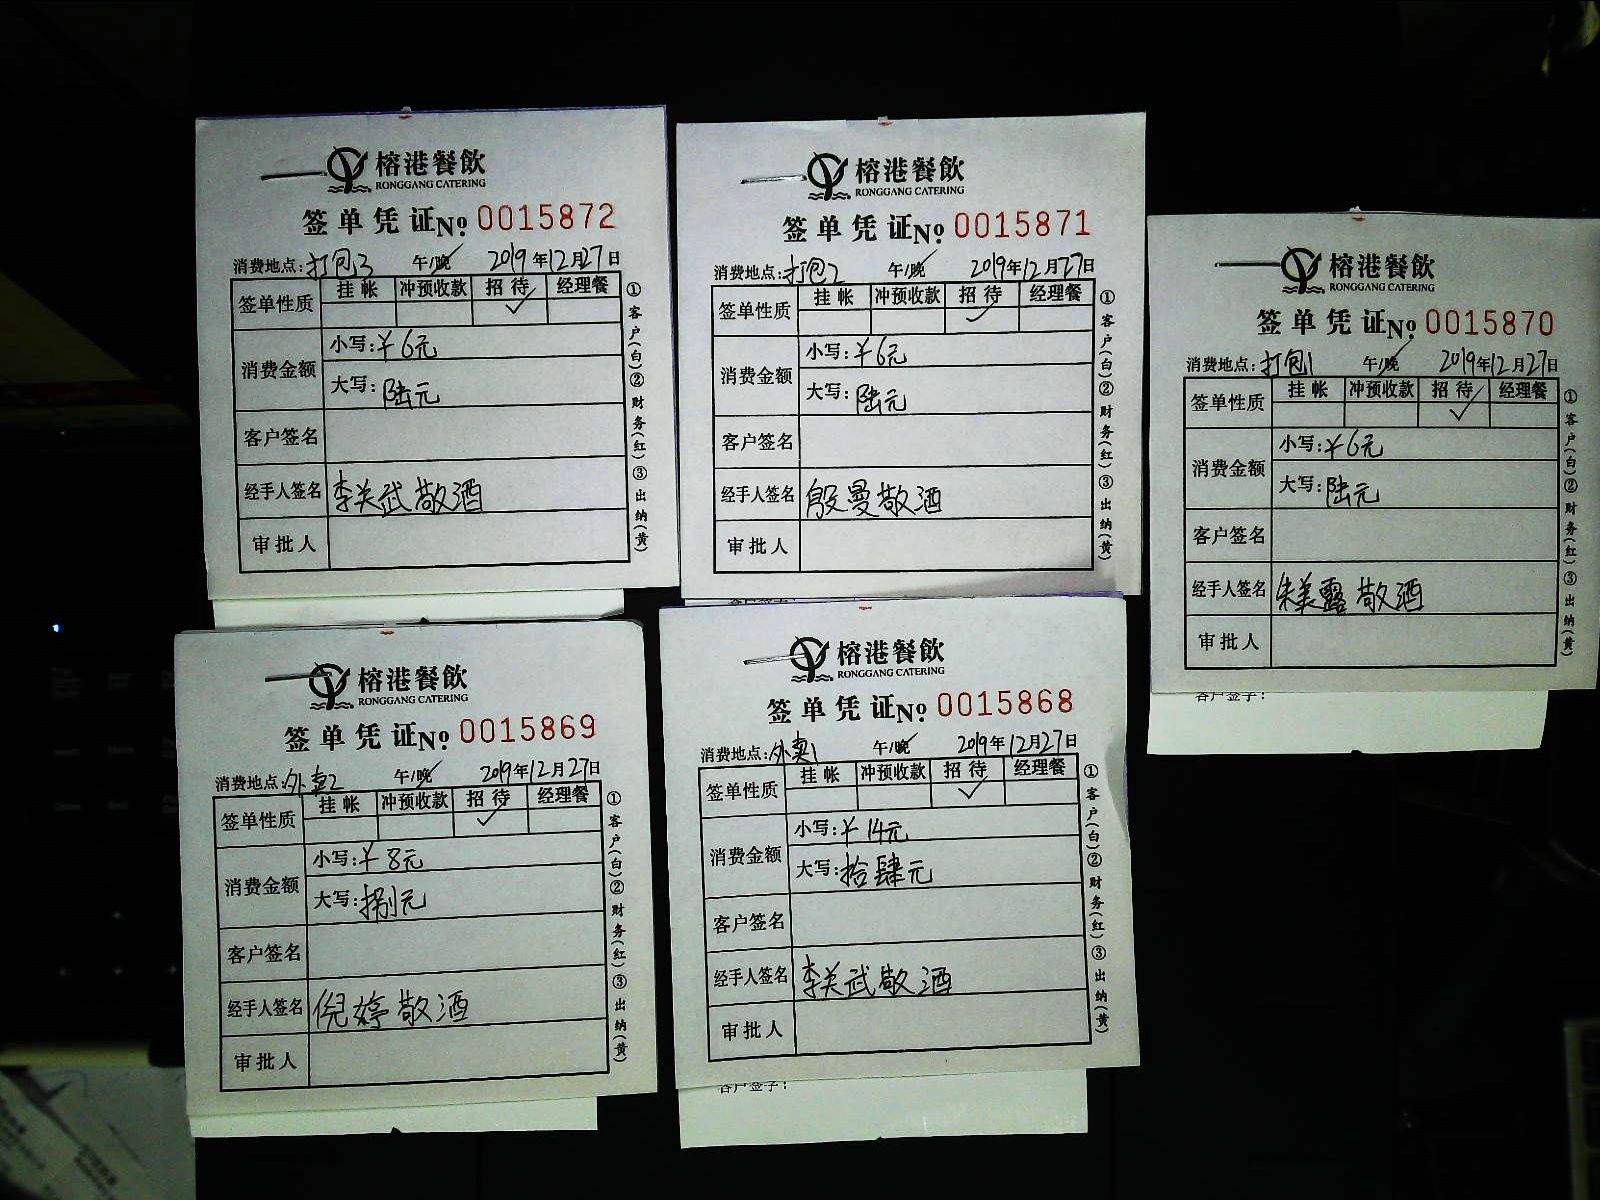 榕港餐飲
RONGGANG CATERING
签单凭证No. 0015872
消费地点:打包3 午/晚 2019年12月27日
签单性质 挂帐 冲预收款 招待 经理餐
✓
消费金额 小写:¥6元
大写:陆元
客户签名
经手人签名 李关武敬酒
审批人
①客户(白)②财务(红)③出纳(黄)
榕港餐飲
RONGGANG CATERING
签单凭证No. 0015871
消费地点:打包2 午/晚 2019年12月27日
签单性质 挂帐 冲预收款 招待 经理餐
✓
消费金额 小写:¥6元
大写:陆元
客户签名
经手人签名 殷曼敬酒
审批人
①客户(白)②财务(红)③出纳(黄)
榕港餐飲
RONGGANG CATERING
签单凭证No. 0015870
消费地点:打包1 午/晚 2019年12月27日
签单性质 挂帐 冲预收款 招待 经理餐
✓
消费金额 小写:¥6元
大写:陆元
客户签名
经手人签名 朱美露敬酒
审批人
①客户(白)②财务(红)③出纳(黄)
客户签字:
榕港餐飲
RONGGANG CATERING
签单凭证No. 0015869
消费地点:外卖2 午/晚 2019年12月27日
签单性质 挂帐 冲预收款 招待 经理餐
✓
消费金额 小写:¥8元
大写:捌元
客户签名
经手人签名 倪婷敬酒
审批人
①客户(白)②财务(红)③出纳(黄)
榕港餐飲
RONGGANG CATERING
签单凭证No. 0015868
消费地点:外卖1 午/晚 2019年12月27日
签单性质 挂帐 冲预收款 招待 经理餐
✓
消费金额 小写:¥14元
大写:拾肆元
客户签名
经手人签名 李关武敬酒
审批人
①客户(白)②财务(红)③出纳(黄)
客户签字: